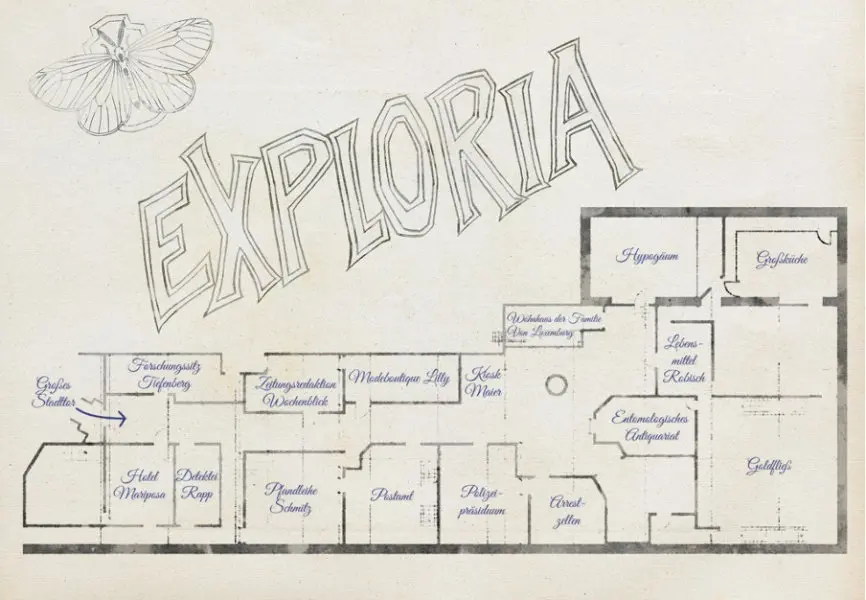 EXPLORIA
Hypogäum
Großküche
Wohnhaus der Familie
Von Luxemburg
Lebens-
mittel
Robisch
Großes
Stadttor
Forschungssitz
Tiefenberg
Zeitungsredaktion
Wochenblick
Modeboutique Lilly
Kiosk
Maier
Entomologisches
Antiquariat
Goldfließ
Hotel
Mariposa
Detektei
Rapp
Pfandleihe
Schmitz
Postamt
Polizei-
präsidium
Arrest-
zellen